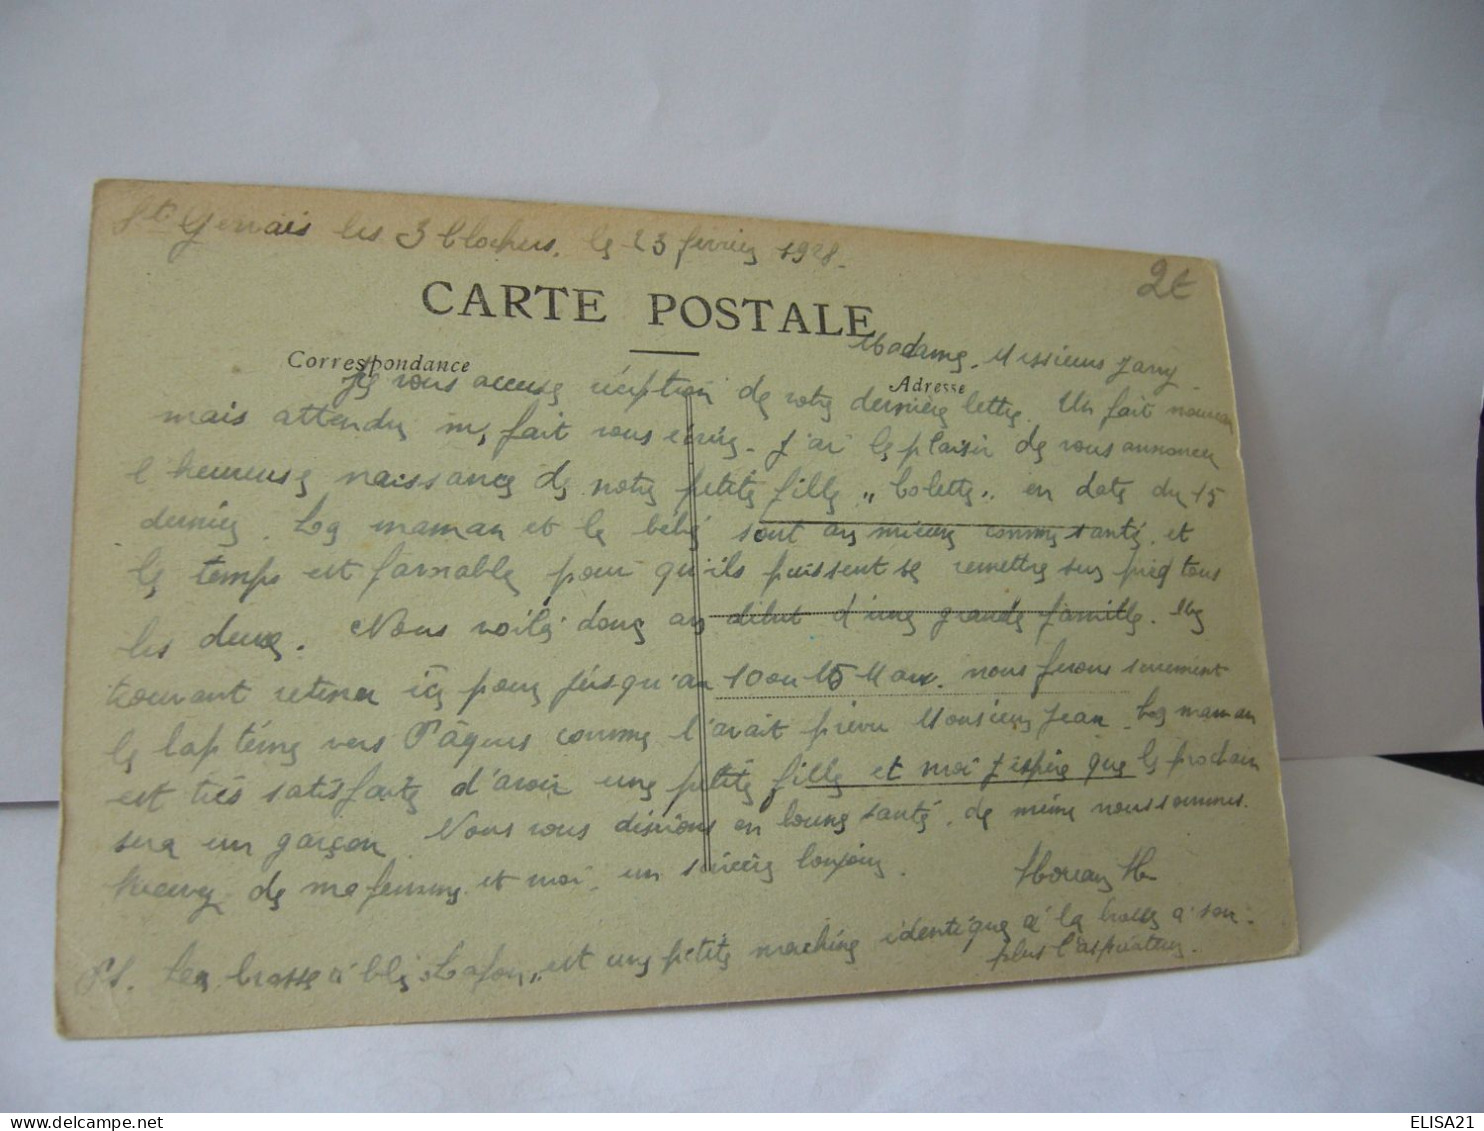 St Gervais les 3 Clochers, le 23 février 1928.
2€
CARTE POSTALE
Correspondance
Adresse
Madame, Messieurs Jarry
Je vous accuse réception de votre dernière lettre. Un fait nouveau
mais attendu me fait vous écrire. J'ai le plaisir de vous annoncer
l'heureuse naissance de notre petite fille "Colette" en date du 15
dernier. La maman et le bébé sont au mieux comme santé, et
le temps est favorable pour qu'ils puissent se remettre sur pied tous
les deux. Nous voilà donc au début d'une grande famille. Me
trouvant retenu ici pour jusqu'au 10 ou 15 Mars. nous ferons surement
le baptême vers Pâques comme l'avait prévu Monsieur Jean. La maman
est très satisfaite d'avoir une petite fille et moi j'espère que le prochain
sera un garçon. Nous vous désirons en bonne santé, de même nous sommes.
Recevez de ma femme et moi un sincère bonjour.
Moreau
PS. La brosse à blé "Lafon" est une petite machine identique à la brosse à son
plus l'aspirateur.
ELISA21